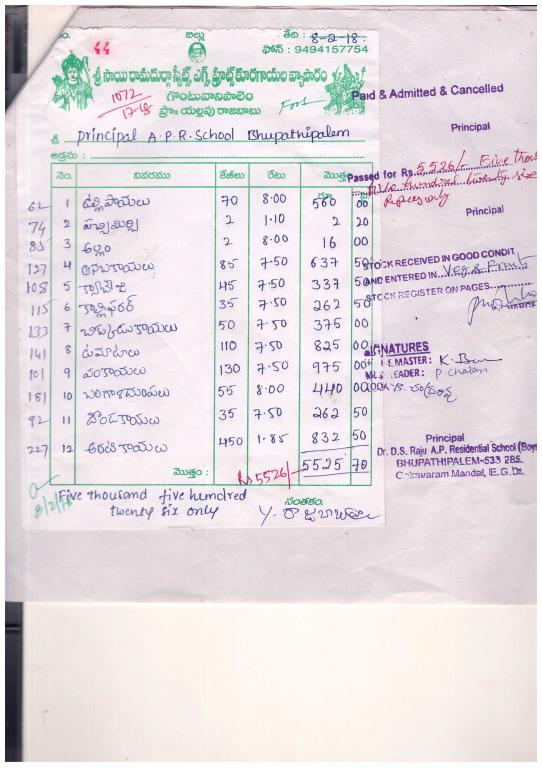 నం. 64 బిల్లు తేది : 8-2-18
ఫోన్ : 9494157754
శ్రీ సాయి రామదుర్గా స్వీట్స్, ఎగ్స్, ఫ్రూట్స్ కూరగాయల వ్యాపారం
1072
17-18
గొంటువానిపాలెం
ప్రొ॥ యల్లపు రాజబాబు
శ్రీ principal A.P.R. School Bhupathipalem
అడ్రసు :
నెం. వివరము కేజీలు రేటు మొత్తం
రూ. పై.
62 1 ఉల్లిపాయలు 70 8.00 560 00
74 2 పచ్చిమిర్చి 2 1.10 2 20
85 3 అల్లం 2 8.00 16 00
127 4 ఆనబకాయలు 85 7.50 637 50
108 5 క్యాబేజి 45 7.50 337 50
115 6 కాలిఫ్లవర్ 35 7.50 262 50
133 7 చిక్కుడుకాయలు 50 7.50 375 00
141 8 టమాటాలు 110 7.50 825 00
101 9 వంకాయలు 130 7.50 975 00
181 10 బంగాళదుంపలు 55 8.00 440 00
92 11 దొండకాయలు 35 7.50 262 50
227 12 అరటికాయలు 450 1.85 832 50
మొత్తం : Rs 5526/- 5525 70
Five thousand five hundred
twenty six only
8/2/18
సంతకం.
Y. రాజబాబు
Paid & Admitted & Cancelled
Principal
Passed for Rs. 5,526/- Five thou
five hundred twenty six
Rupees only
Principal
STOCK RECEIVED IN GOOD CONDIT
AND ENTERED IN Veg & Fruit
STOCK REGISTER ON PAGES
SIGNATURES
MASTER:
LEADER: P. chalam
COOK
Principal
Dr. D.S. Raju A.P. Residential School (Boys
BHUPATHIPALEM-533 285.
Mandal, (E.G.Dt